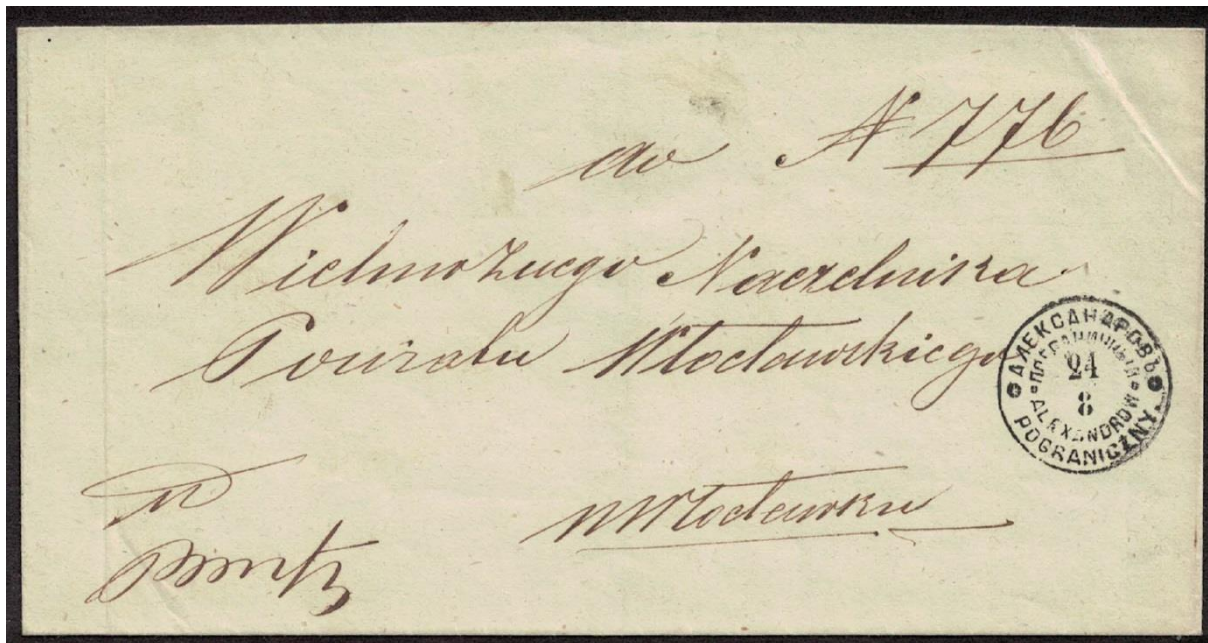 do № 776
Wielmożnego Naczelnika
Powiatu Włocławskiego
w Włocławku
АЛЕКСАНДРОВЪ
ПОГРАНИЧНЫЙ
24
8
ALEXANDROW
POGRANICZNY.